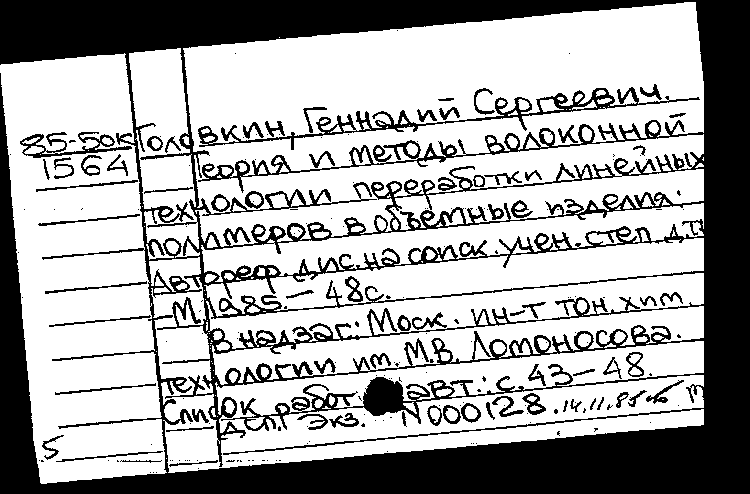 85-50к Головкин, Геннадий Сергеевич.
1564 Теория и методы волоконной
технологии переработки линейных
полимеров в объемные изделия:
Автореф. дис. на соиск. учен. степ. д.т.н
-М., 1985.- 48с.
В надзаг.: Моск. ин-т тон. хим.
технологии им. М.В. Ломоносова.
Список работ авт.: с.43-48.
ДСП. Экз. N000128. 14.11.85
5